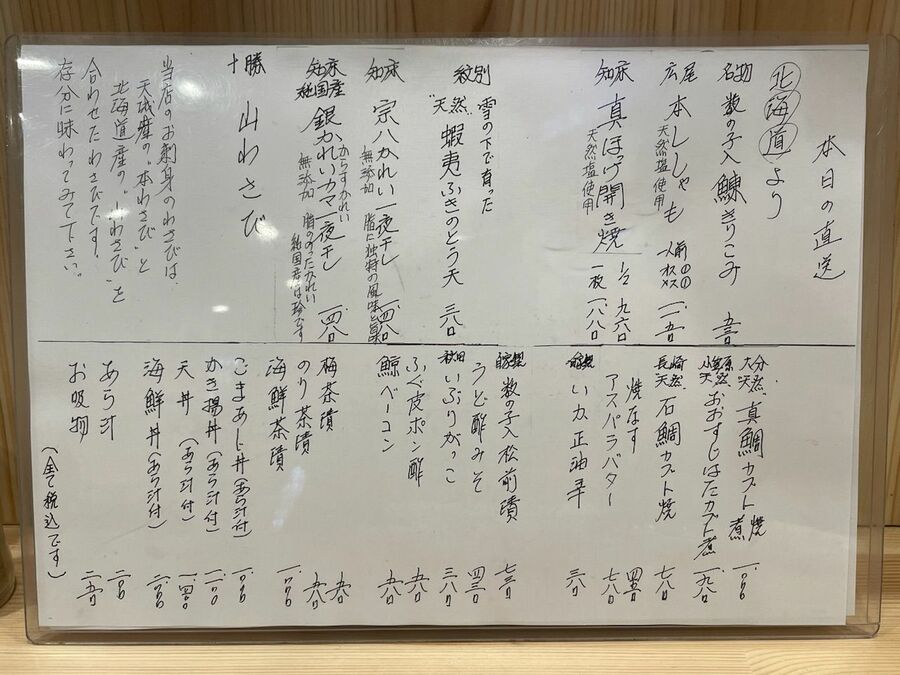 本日の直送
北海道より
名物 数の子入鰊きりこみ 五五〇
広尾 本ししゃも 天然塩使用
知床 真ほっけ開き焼 天然塩使用 1/2 九六〇
一枚 一、八八〇
雪の下で育った
紋別 "天然"蝦夷ふきのとう天 三八〇
知床 宗八かれい一夜干し
無添加 脂に独特の風味と旨
知床 純国産 銀かれいカマ一夜干し 一、四八〇
からすかれい
無添加 脂ののったかれい
純国産は珍らす
十勝 山わさび
当店のお刺身のわさびは、
天城産の"本わさび"と
北海道産の"山わさび"を
合わせたわさびです。
存分に味わってみて下さい。
大分 天然 真鯛カブト 煮 焼
小笠原 天然 おおすじはたカブト煮 一、九八〇
長崎 天然 石鯛カブト焼 七八〇
焼なす 四五〇
アスパラバター 七八〇
自家製 いか正油辛 三八〇
自家製 数の子入松前漬 七三〇
うど酢みそ 四三〇
秋田 いぶりがっこ 三八〇
ふぐ皮ポン酢 五八〇
鯨ベーコン 五八〇
梅茶漬 五八〇
のり茶漬 五八〇
海鮮茶漬
ごまあじ丼(あら汁付)
かき揚丼(あら汁付)
天丼(あら汁付)
海鮮丼(あら汁付)
あら汁
お吸物 二五〇
(全て税込です)